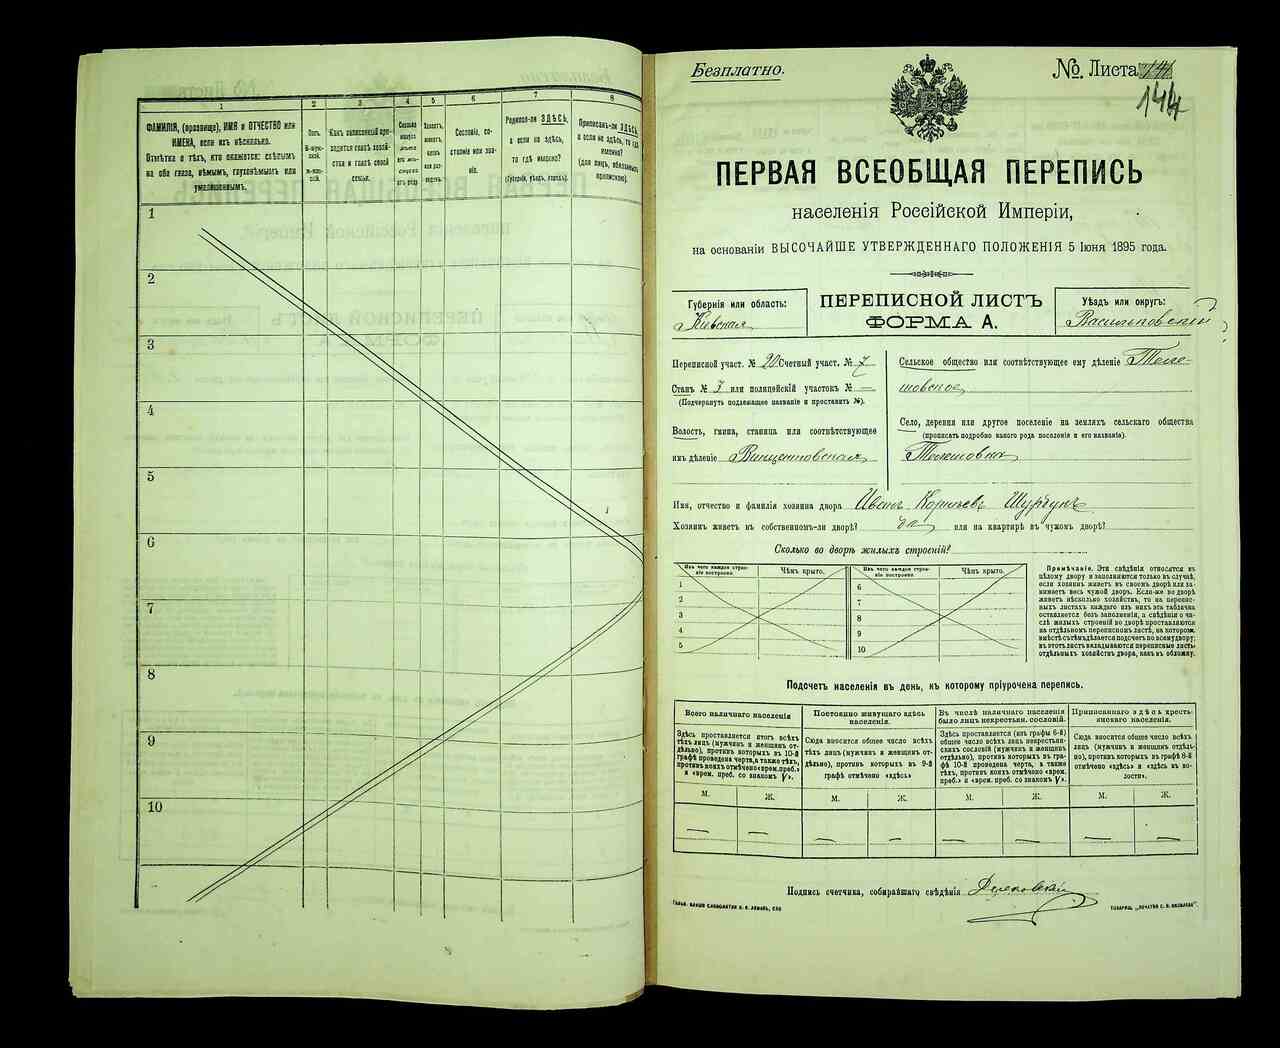 1
2
3
4
5
6
7
8
ФАМИЛІЯ, (прозвище), ИМЯ и ОТЧЕСТВО или
ИМЕНА, если ихъ нѣсколько.
Отмѣтка о тѣхъ, кто окажется: слѣпымъ
на оба глаза, нѣмымъ, глухонѣмымъ или
умалишеннымъ.
Полъ.
М-муж-
ской.
Ж-жен-
скій.
Какъ записанный при-
ходится главѣ хозяй-
ства и главѣ своей
семьи.
Сколько
минуло
лѣтъ
Холостъ,
женатъ,
вдовъ
Сословіе, со-
стояніе или зва-
ніе.
Родился-ли ЗДѢСЬ,
а если не здѣсь,
то гдѣ именно?
(Губернія, уѣздъ, городъ).
Приписанъ-ли ЗДѢСЬ,
а если не здѣсь, то гдѣ
именно?
(для лицъ, обязанныхъ
припискою).
1
2
3
4
5
6
7
8
9
10
Безплатно.
№ Листа
144
ПЕРВАЯ ВСЕОБЩАЯ ПЕРЕПИСЬ
населенія Россійской Имперіи,
на основаніи ВЫСОЧАЙШЕ УТВЕРЖДЕННАГО ПОЛОЖЕНІЯ 5 Іюня 1895 года.
Губернія или область:
Кіевская
ПЕРЕПИСНОЙ ЛИСТЪ
ФОРМА А.
Уѣздъ или округъ:
Васильковскій
Переписной участ. № 20 Счетный участ. № 7
Станъ № 3 или полицейскій участокъ № —
(Подчеркнуть подлежащее названіе и проставить №).
Волость, гмина, станица или соотвѣтствующее
имъ дѣленіе Винцентовская
Сельское общество или соотвѣтствующее ему дѣленіе Теле-
шовское
Село, деревня или другое поселеніе на земляхъ сельскаго общества
(прописать подробно какого рода поселеніе и его названіе).
Телешовка
Имя, отчество и фамилія хозяина двора Иванъ Корніевъ
Хозяинъ живетъ въ собственномъ-ли дворѣ? да или на квартирѣ въ чужомъ дворѣ?
Сколько во дворѣ жилыхъ строеній?
Изъ чего каждое строе-
ніе построено.
Чѣмъ крыто.
1
2
3
4
5
Изъ чего каждое строе-
ніе построено.
Чѣмъ крыто.
6
7
8
9
10
Примѣчаніе. Эти свѣдѣнія относятся къ
цѣлому двору и заполняются только въ случаѣ,
если хозяинъ живетъ въ своемъ дворѣ или за-
нимаетъ весь чужой дворъ. Если-же во дворѣ
живетъ нѣсколько хозяйствъ, то на перепис-
ныхъ листахъ каждаго изъ нихъ эта табличка
оставляется безъ заполненія, а свѣдѣнія о чи-
слѣ жилыхъ строеній во дворѣ проставляются
на отдѣльномъ переписномъ листѣ, на которомъ
вмѣстѣ съ тѣмъ дѣлается подсчетъ по всему двору;
въ этотъ листъ вкладываются переписные листы
отдѣльныхъ хозяйствъ двора, какъ въ обложку.
Подсчетъ населенія въ день, къ которому пріурочена перепись.
Всего наличнаго населенія
Здѣсь проставляется итогъ всѣхъ
тѣхъ лицъ (мужчинъ и женщинъ от-
дѣльно), противъ которыхъ въ 10-й
графѣ проведена черта, а также тѣхъ,
противъ коихъ отмѣчено «врем. преб.»
и «врем. преб. со знакомъ V».
Постоянно живущаго здѣсь
населенія.
Сюда вносится общее число всѣхъ
тѣхъ лицъ (мужчинъ и женщинъ от-
дѣльно), противъ которыхъ въ 9-й
графѣ отмѣчено «здѣсь»
Въ числѣ наличнаго населенія
было лицъ некрестьян. сословій.
Здѣсь проставляется (изъ графы 6-й)
общее число всѣхъ лицъ некрестьян-
скихъ сословій (мужчинъ и женщинъ
отдѣльно), противъ которыхъ въ гра-
фѣ 10-й проведена черта, а также
тѣхъ, противъ коихъ отмѣчено «врем.
преб.» и «врем. преб. со знакомъ V».
Приписаннаго здѣсь кресть-
янскаго населенія.
Сюда вносится общее число всѣхъ
лицъ (мужчинъ и женщинъ отдѣль-
но), противъ которыхъ въ графѣ 8-й
отмѣчено «здѣсь» и «здѣсь въ во-
лости».
М.
Ж.
М.
Ж.
М.
Ж.
М.
Ж.
— — — —
Подпись счетчика, собиравшаго свѣдѣнія